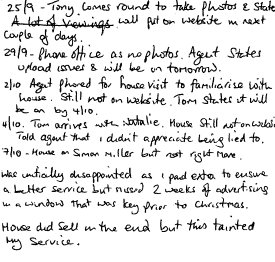 25/9 - Tony comes round to take photos & State
A lot of Viewings will put on website in next
couple of days.
29/9 - Phone office as no photos. Agent States
upload issues & will be on tomorrow.
2/10 Agent phoned for house visit to familiarise with
house. Still not on website. Tom States it will
be on by 4/10.
4/10. Tom arrives with Natalie. House Still not on websi
Told agent that I didn't appreciate being lied to.
7/10 - House on Simon Miller but not right move.
was initially disappointed as I paid extra to ensure
a better service but missed 2 weeks of advertising
in a window that was key prior to Christmas.
House did sell in the end but this tainted
my Service.